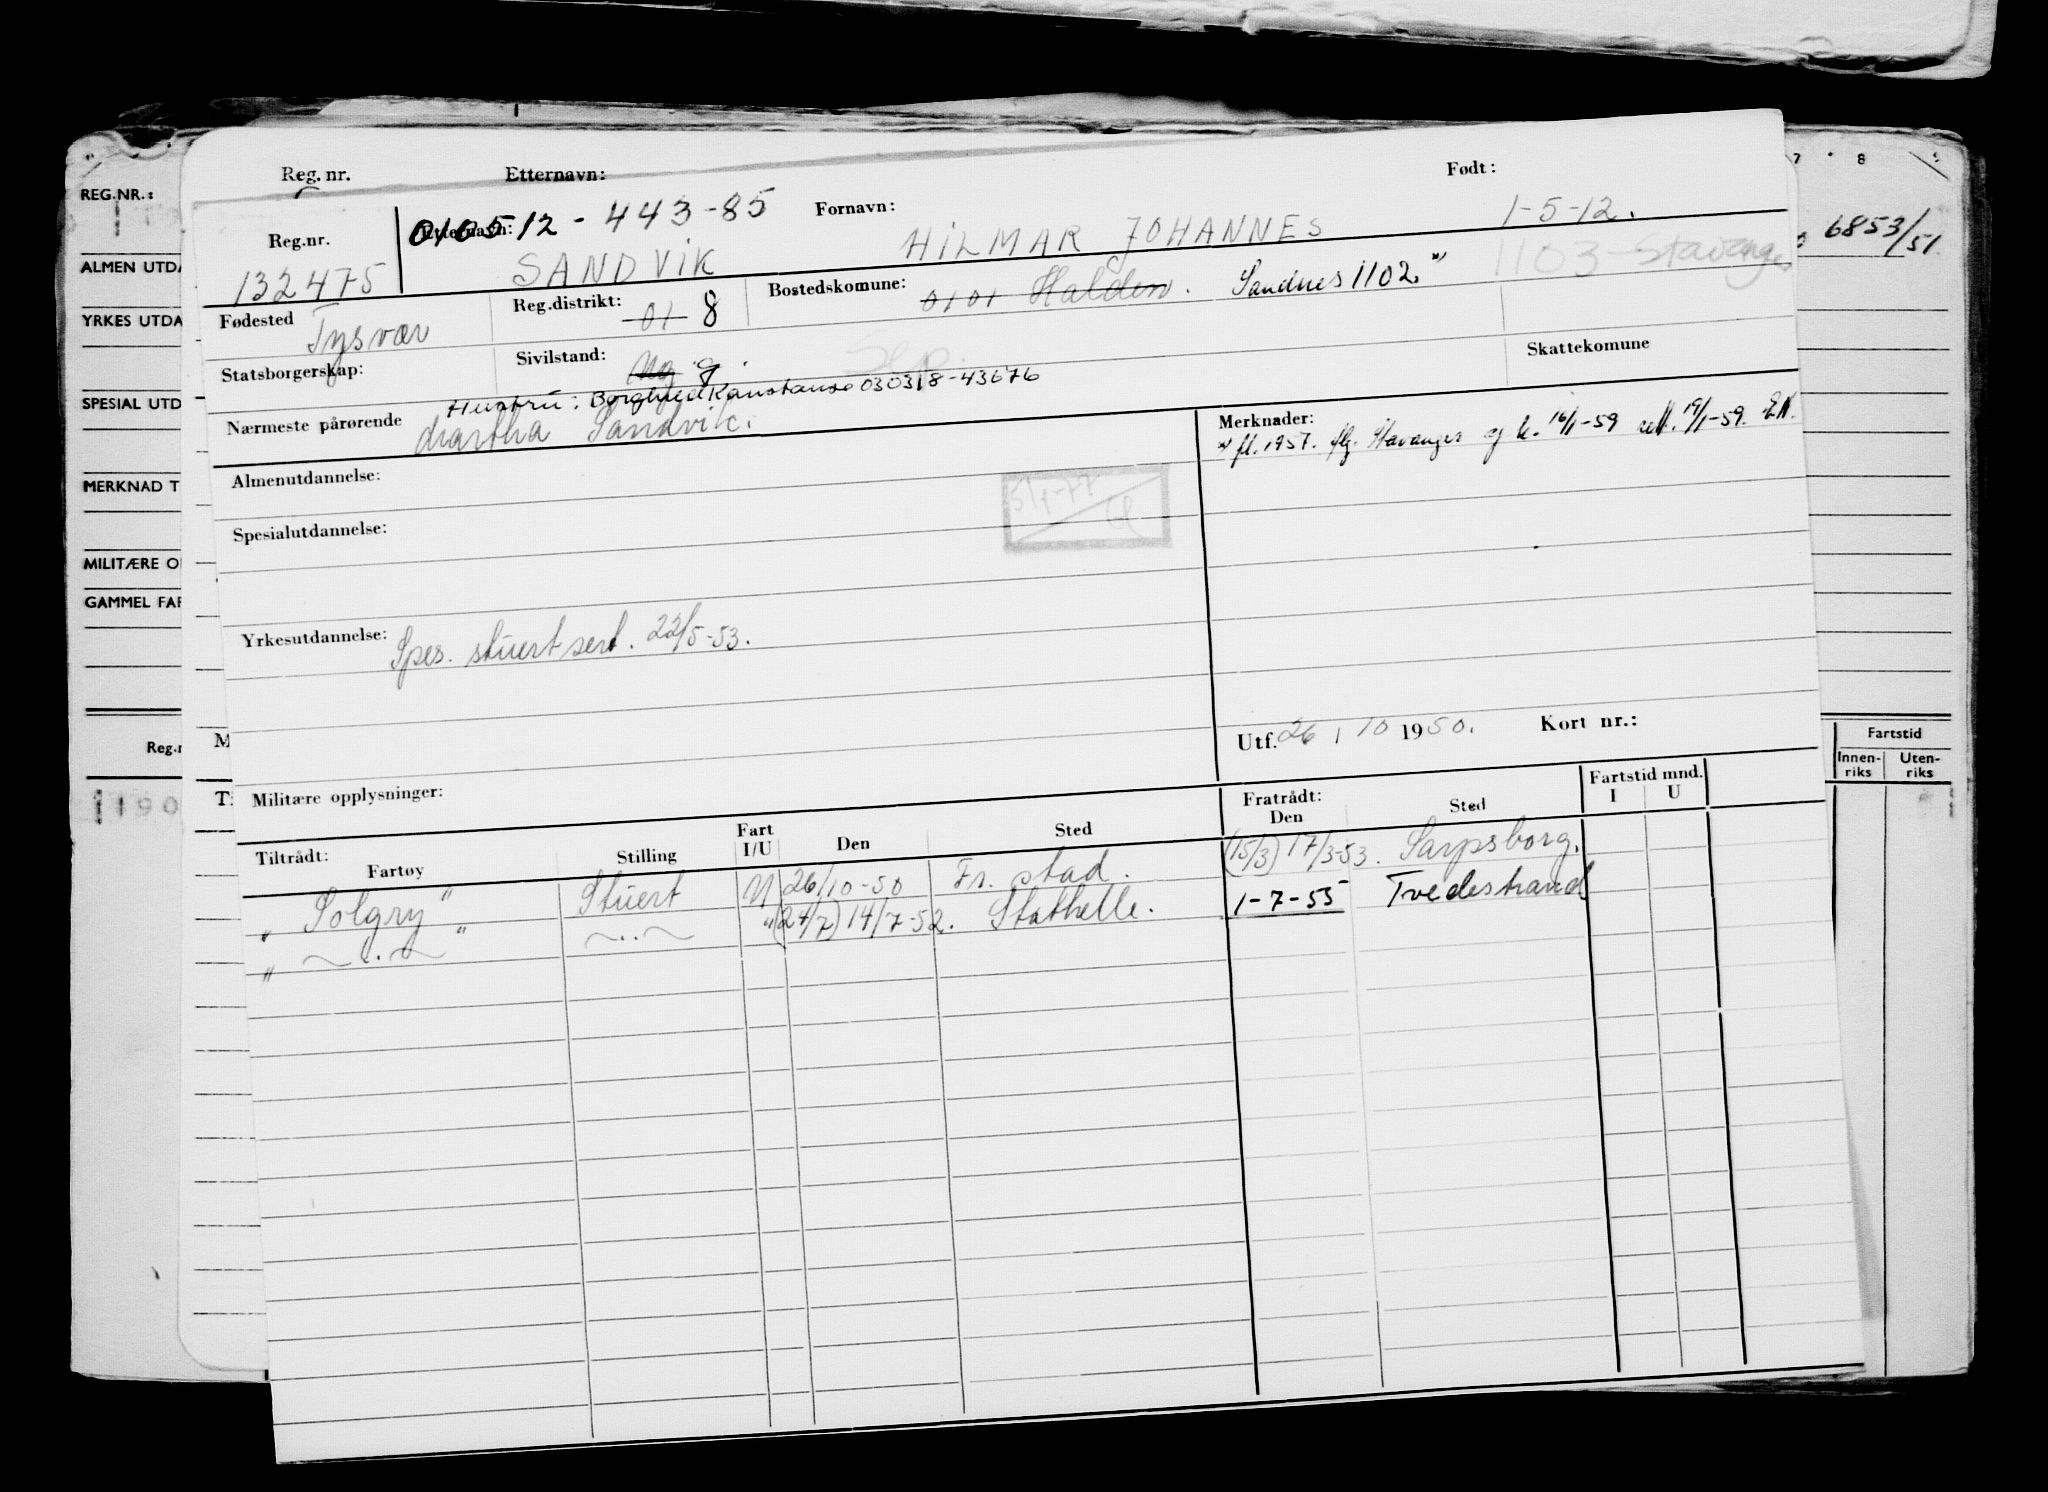 Reg. nr. Etternavn: Fornavn: Født:
Reg.nr. Etternavn: 010512 - 443-85
132475 SANDVIK HILMAR JOHANNES 1-5-12.
Fødested Tysvær Reg.distrikt: 01 8 Bostedskomune: 0101 Halden. Sandnes 1102. 1103-Stavanger
Statsborgerskap: Sivilstand: Ug g. Sep. Skattekomune
Hustru: Borghild Konstanse 030318-43676
Nærmeste pårørende Martha Sandvik. Merknader:
fl. 1957. flg. Stavanger 16/1-59 19/1-59. EN.
Almenutdannelse:
5/1-77
Spesialutdannelse:
Yrkesutdannelse: Spes. stuert sert. 22/5-53.
Utf. 26 / 10 1950. Kort nr.:
Militære opplysninger:
Tiltrådt: Fratrådt: Fartstid mnd.
Fartøy Stilling Fart I/U Den Sted Den Sted I U
„ Solgry " Stuert U 26/10-50 Fr. stad. (15/3) 17/3-53. Sarpsborg.
„ ~ . ~ " ~..~ " (24/7) 14/7-52. Stathelle. 1-7-55 Tvedestrand
REG.NR.:
ALMEN UTDA
YRKES UTDA
SPESIAL UTD
MERKNAD T
MILITÆRE O
GAMMEL FAR
Reg.r
1190
M
T
7 8
6853/51.
Fartstid
Innen-riks Uten-riks